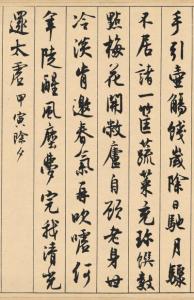 手引壺觴餞歲除日馳月驟
不居諸一筐蔬菜充珍饌數
點梅花開敝廬自願老身世
冷淡肯邀春氣再吹噓何
年陡醒風塵夢完我清光
還太虛 甲寅除夕